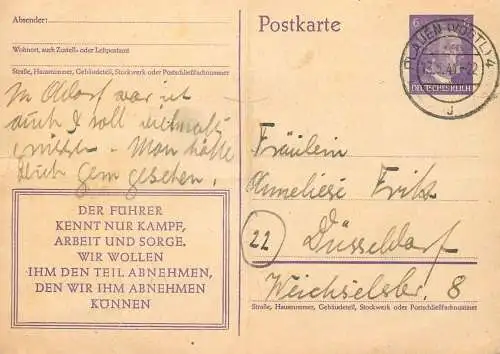 Absender:
Wohnort, auch Zustell- oder Leitpostamt
Straße, Hausnummer, Gebäudeteil, Stockwerk oder Postschließfachnummer
auch & soll
Man hätte
Euch gern gesehen.
DER FÜHRER
KENNT NUR KAMPF,
ARBEIT UND SORGE.
WIR WOLLEN
IHM DEN TEIL ABNEHMEN,
DEN WIR IHM ABNEHMEN
KÖNNEN
Postkarte
6
PLAUEN (VOGTL) 4
DEUTSCHES REICH
Fräulein
Anneliese
22
Düsseldorf
8
Straße, Hausnummer, Gebäudeteil, Stockwerk oder Postschließfachnummer